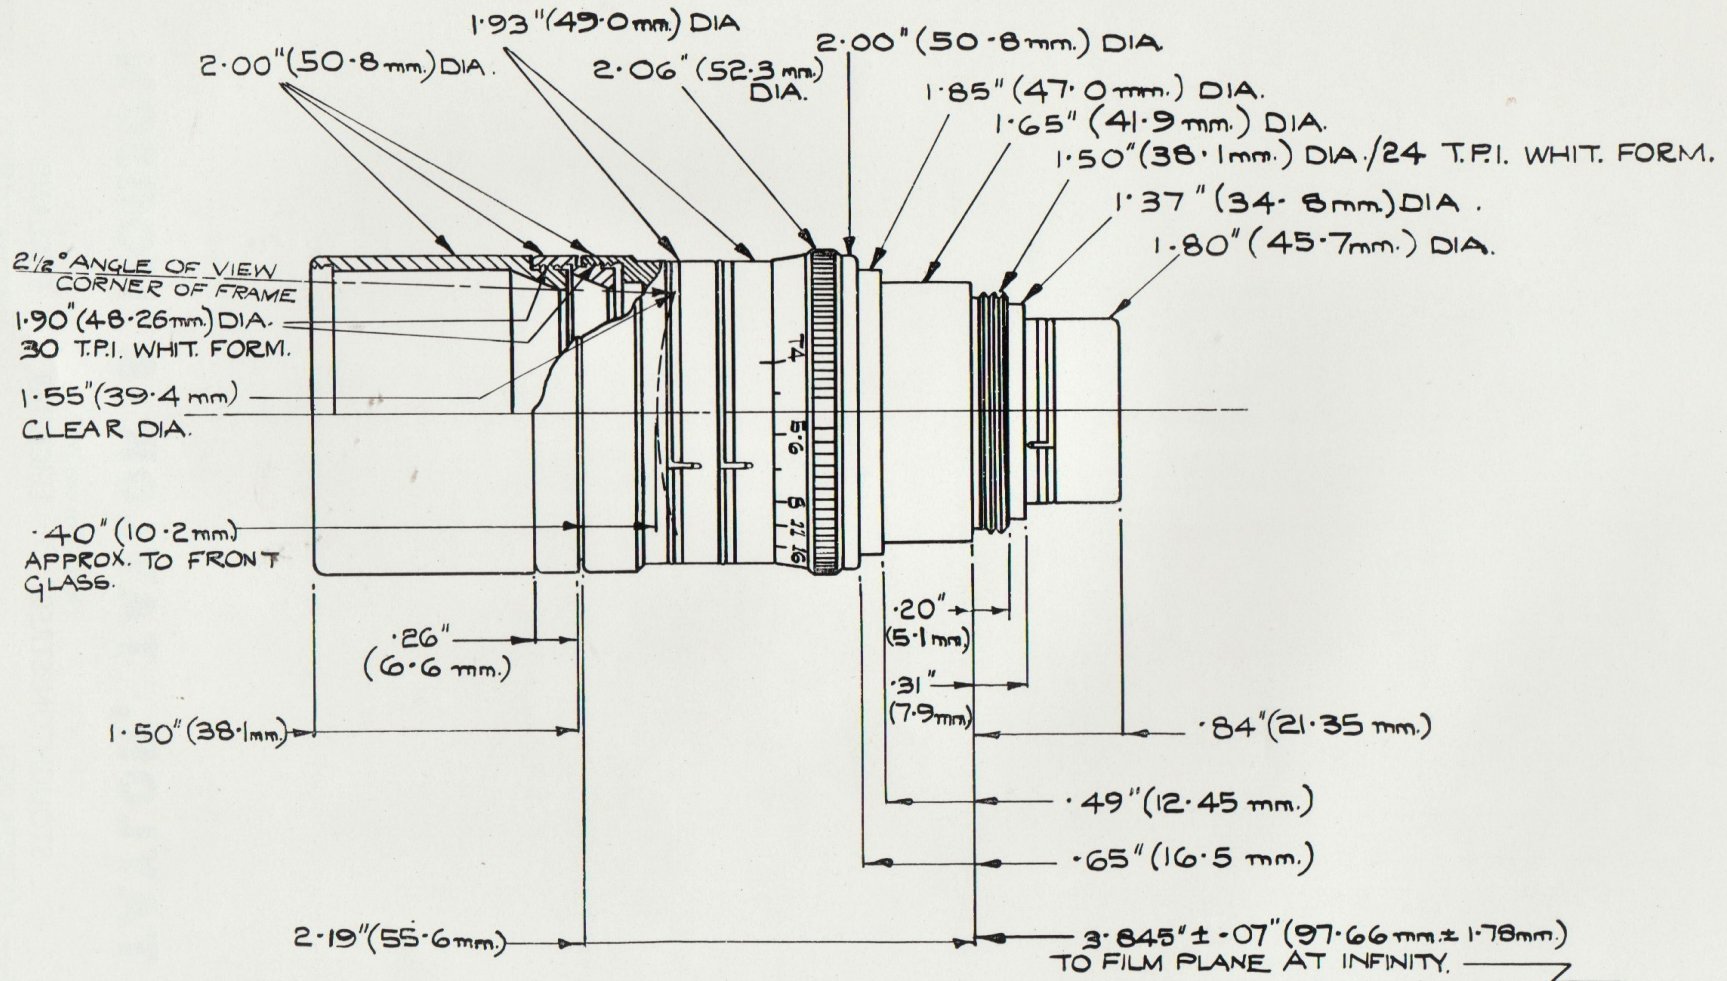 1·93"(49·0mm.) DIA
2·00"(50·8mm.) DIA.
2·00"(50·8mm.) DIA.
2·06"(52·3mm.)
DIA.
1·85"(47·0mm.) DIA.
1·65"(41·9mm.) DIA.
1·50"(38·1mm.) DIA./24 T.P.I. WHIT. FORM.
1·37"(34·8mm.) DIA.
1·80"(45·7mm.) DIA.
2½° ANGLE OF VIEW
CORNER OF FRAME
1·90"(48·26mm.) DIA.
30 T.P.I. WHIT. FORM.
1·55"(39·4mm)
CLEAR DIA.
T4
5·6
8
11
16
·40"(10·2mm.)
APPROX. TO FRONT
GLASS.
·26"
(6·6mm.)
·20"
(5·1mm.)
·31"
(7·9mm)
1·50"(38·1mm.)
·84"(21·35mm.)
·49"(12·45mm.)
·65"(16·5mm.)
2·19"(55·6mm.)
3·845"±·07"(97·66mm.±1·78mm.)
TO FILM PLANE AT INFINITY.